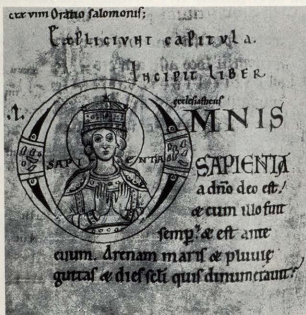 cxx viiii Oratio salomonis;
EXPLICIVNT CAPITVLA.
INCIPIT LIBER
ecclesiasticus
.I. OMNIS
SAPI ENTIA
SAPIENTIA
a dño deo est.
& cum illo fuit
semp. & est ante
euum. Arenam maris & pluuię
guttas & dies scli quis dinumerauit?